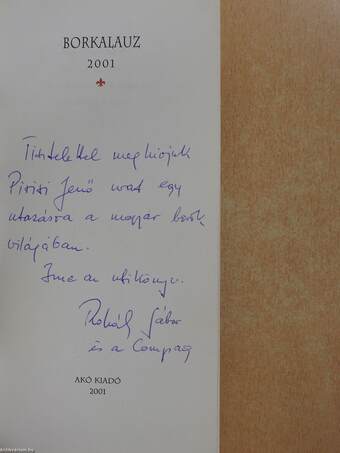 BORKALAUZ
2001
Tisztelettel meghívjuk
Pirisi Jenő urat egy
utazásra a magyar borok
világában.
Íme az útikönyv.
Rohály Gábor
és a Company
AKÓ KIADÓ
2001